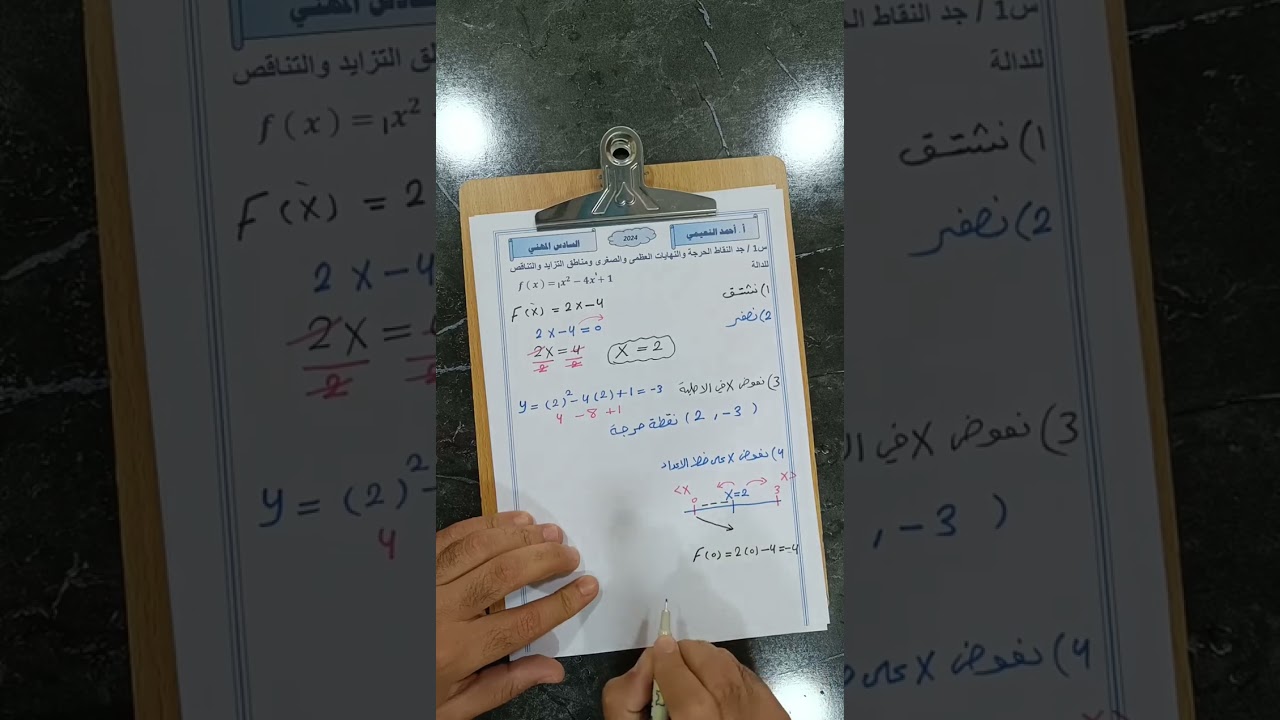 أ. أحمد النعيمي
2024
السادس المهني
س1 / جد النقاط الحرجة والنهايات العظمى والصغرى ومناطق التزايد والتناقص
للدالة
f ( x ) = 1x² − 4x¹ + 1
1) نشتق
F(x̀) = 2x − 4
2) نصفر
2x − 4 = 0
2x = 4
2 2
X = 2
3) نعوض x في الاصلية
y = (2)² − 4(2) + 1 = −3
4 − 8 + 1
(2 , −3) نقطة حرجة
4) نعوض x على خط الاعداد
<X X>
0 X=2 3
F(0) = 2(0) − 4 = −4